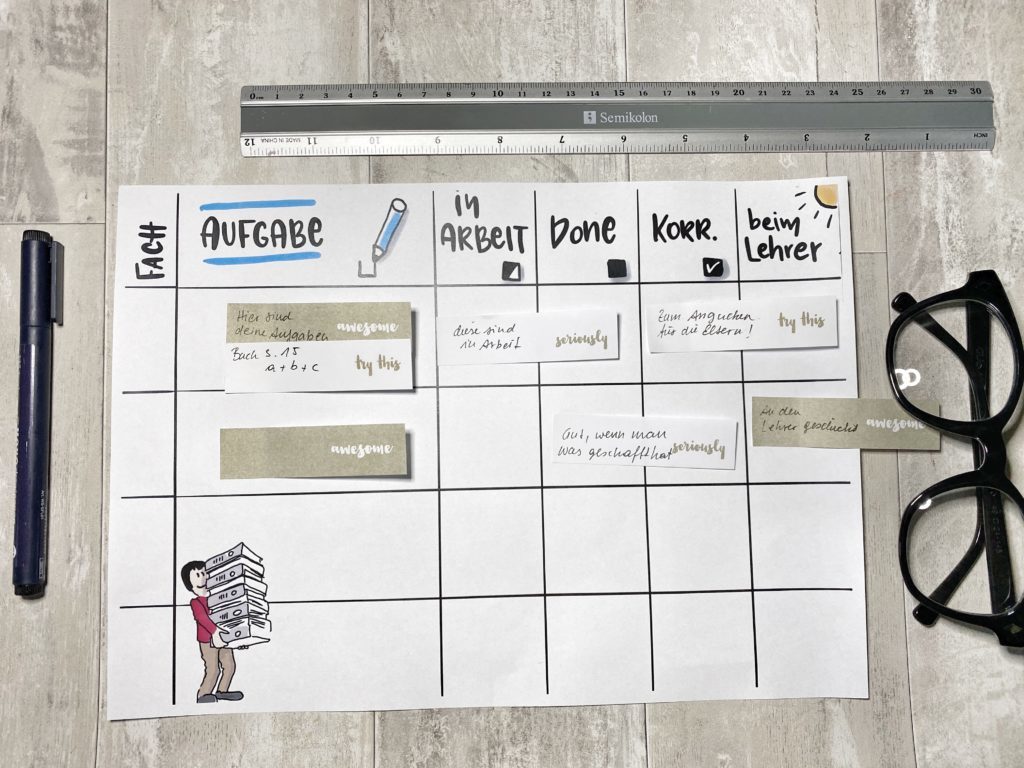 0 cm 1 2 3 4 5 6 7 8 9 10 11 12 13 14 15 16 17 18 19 20 21 22 23 24 25 26 27 28 29 30
Semikolon
12 MADE IN CHINA 11 10 9 8 7 6 5 4 3 2 1 INCH
FACH
AUFGABE
in
ARBEIT
DONE
KORR.
beim
Lehrer
Hier sind
deine Aufgaben
awesome
Buch S. 15
a+b+c
try this
diese sind
in Arbeit
seriously
Zum Angucken
für die Eltern!
try this
awesome
Gut, wenn man
was geschafft hat
seriously
an den
Lehrer geschickt
awesome